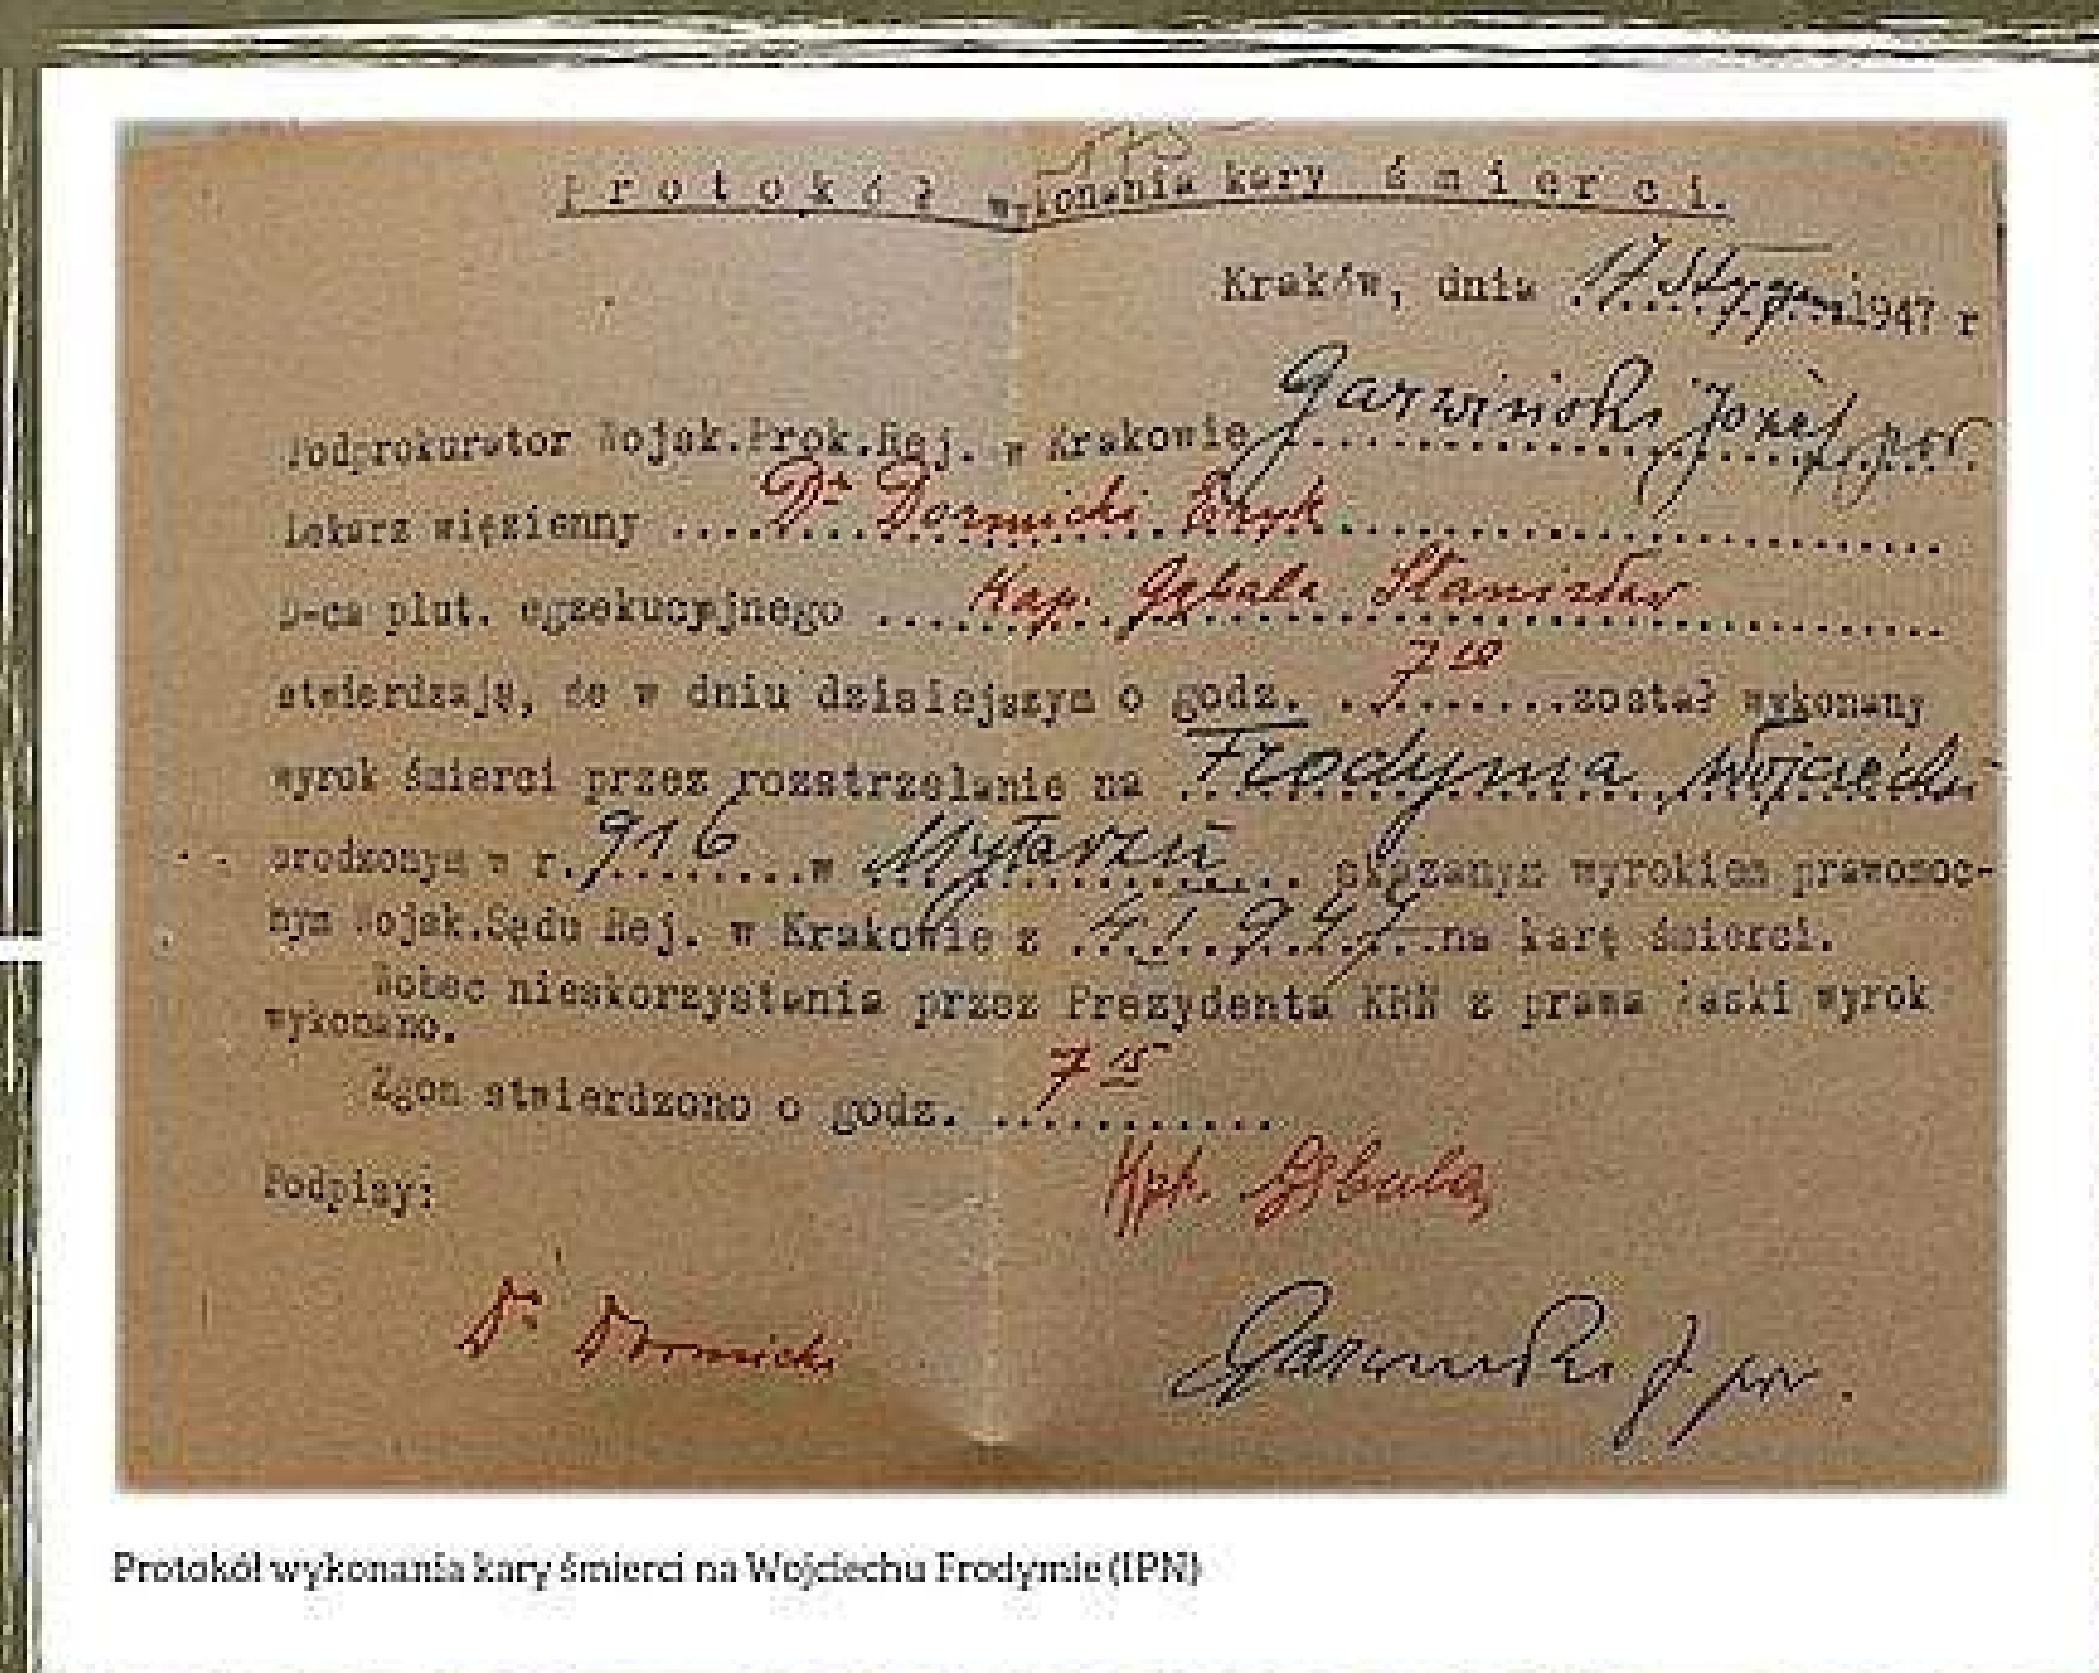 P r o t o k ó ł wykonania kary ś m i e r c i.
Kraków, dnia 17. Stycznia 1947 r
Podprokurator Wojsk.Prok.Rej. w Krakowie Garwiński Józef por.
Lekarz więzienny .... Dr Dormicki Eryk
D-ca plut. egzekucyjnego .... Kap. Gębala Stanisław
stwierdzają, że w dniu dzisiejszym o godz. 7 10 został wykonany
wyrok śmierci przez rozstrzelanie na Frodyma Wojciech
urodzonym w r. 916 w Mytarzu skazanym wyrokiem prawomoc-
nym Wojsk.Sądu Rej. w Krakowie z na karę śmierci.
Wobec nieskorzystania przez Prezydenta KRN z prawa łaski wyrok
wykonano.
Zgon stwierdzono o godz. 7 15
Podpisy:
Kpt. Gębala
Dr Dormicki
Garwiński J. por.
Protokół wykonania kary śmierci na Wojciechu Frodymie (IPN)